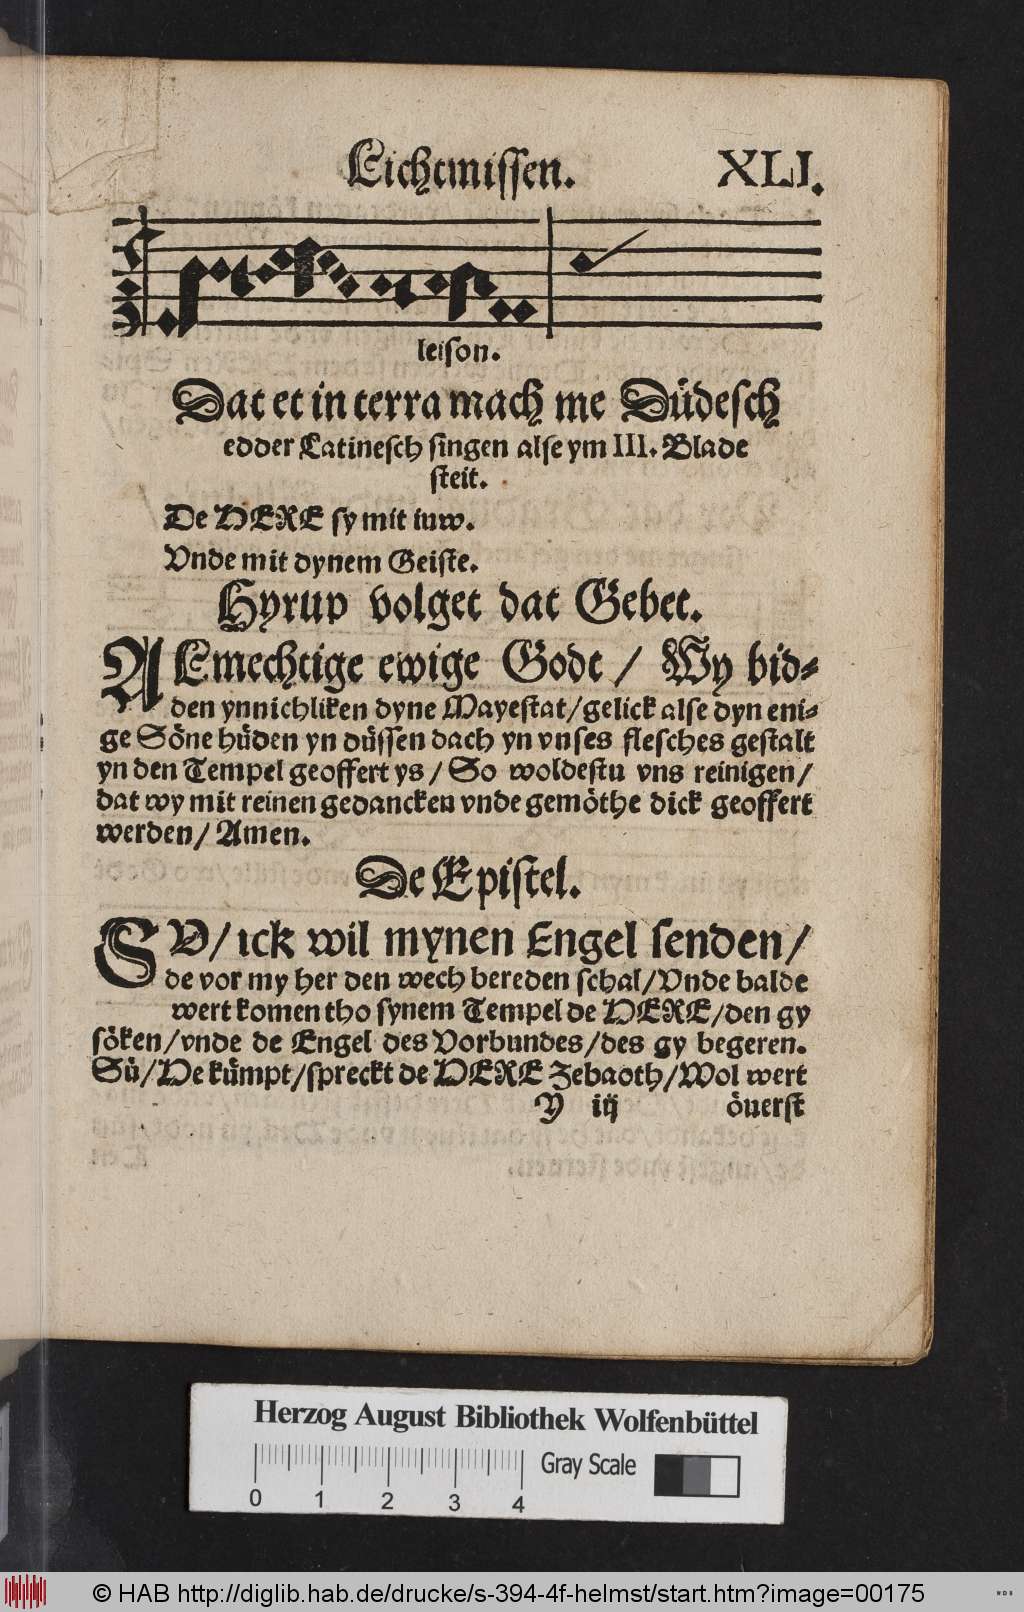 Lichtmissen. XLI.
leison.
Dat et in terra mach me Düdesch
edder Latinesch singen alse ym III. Blade
steit.
De HERE sy mit iuw.
Vnde mit dynem Geiste.
Hyrup volget dat Gebet.
ALmechtige ewige Godt / Wy bid-
den ynnichliken dyne Mayestat/gelick alse dyn eni-
ge Söne hüden yn düssen dach yn vnses flesches gestalt
yn den Tempel geoffert ys / So woldestu vns reinigen/
dat wy mit reinen gedancken vnde gemöthe dick geoffert
werden/ Amen.
De Epistel.
SU/ ick wil mynen Engel senden/
de vor my her den wech bereden schal/Vnde balde
wert komen tho synem Tempel de HERE/den gy
söken/vnde de Engel des Vorbundes/des gy begeren.
Sü/He kümpt/spreckt de HERE Zebaoth/Wol wert
Y iij öuerst
Herzog August Bibliothek Wolfenbüttel
Gray Scale
0 1 2 3 4
© HAB http://diglib.hab.de/drucke/s-394-4f-helmst/start.htm?image=00175